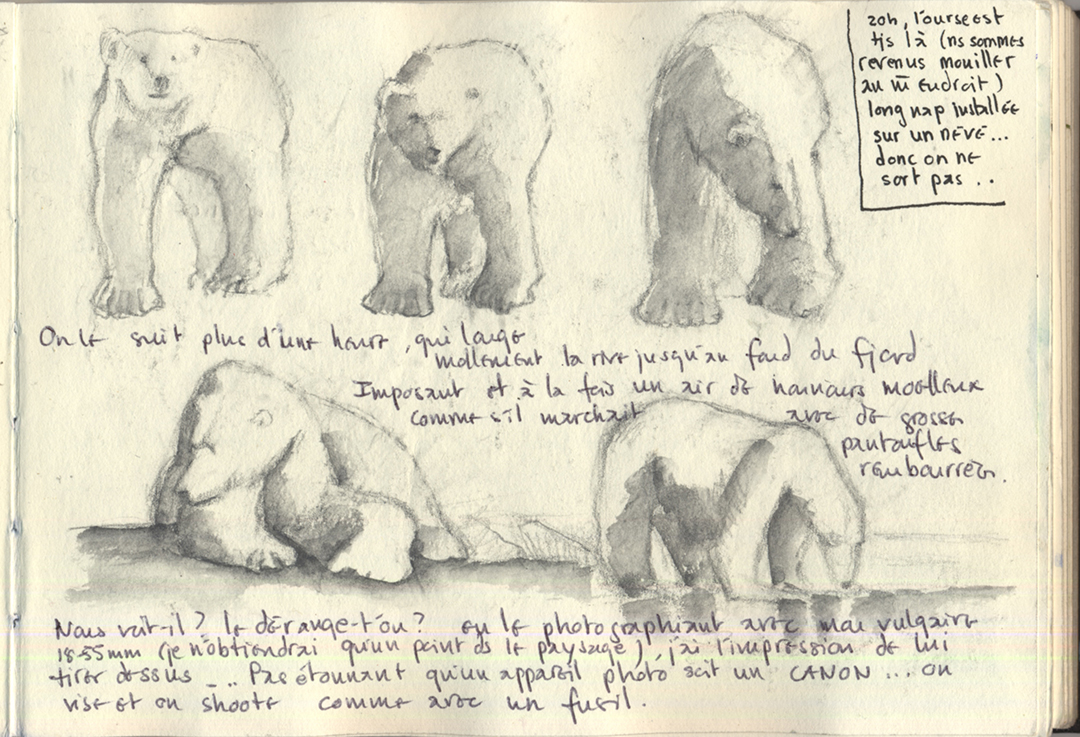 20h, l'ourse est
tjs là (ns sommes
revenus mouiller
au m̄ endroit)
long nap installée
sur un névé...
donc on ne
sort pas ..
On le suit plus d'une heure, qui longe
mollement la rive jusqu'au fond du fjord
Imposant et à la fois un air de nounours moelleux
comme s'il marchait avec de grosses
pantoufles
rembourrées.
Nous voit-il? le dérange-t'on? en le photographiant avec mon vulgaire
18-55mm (je n'obtiendrai qu'un point ds le paysage) j'ai l'impression de lui
tirer dessus ... Pas étonnant qu'un appareil photo soit un CANON ... on
vise et on shoote comme avec un fusil.